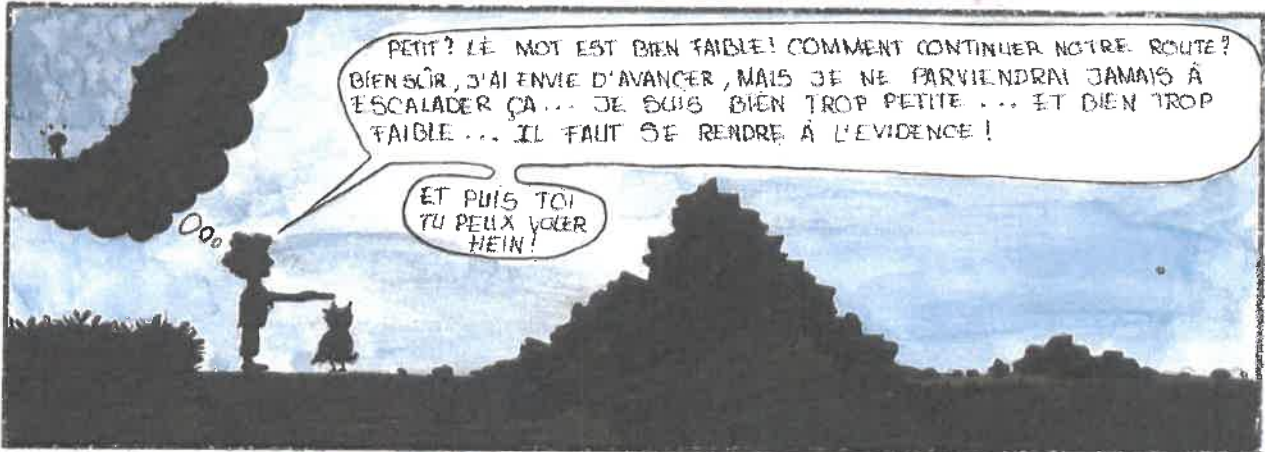 PETIT? LE MOT EST BIEN FAIBLE! COMMENT CONTINUER NOTRE ROUTE?
BIEN SÛR, J'AI ENVIE D'AVANCER, MAIS JE NE PARVIENDRAI JAMAIS À
ESCALADER ÇA... JE SUIS BIEN TROP PETITE ... ET BIEN TROP
FAIBLE ... IL FAUT SE RENDRE À L'EVIDENCE!
ET PUIS TOI
TU PEUX VOLER
HEIN!